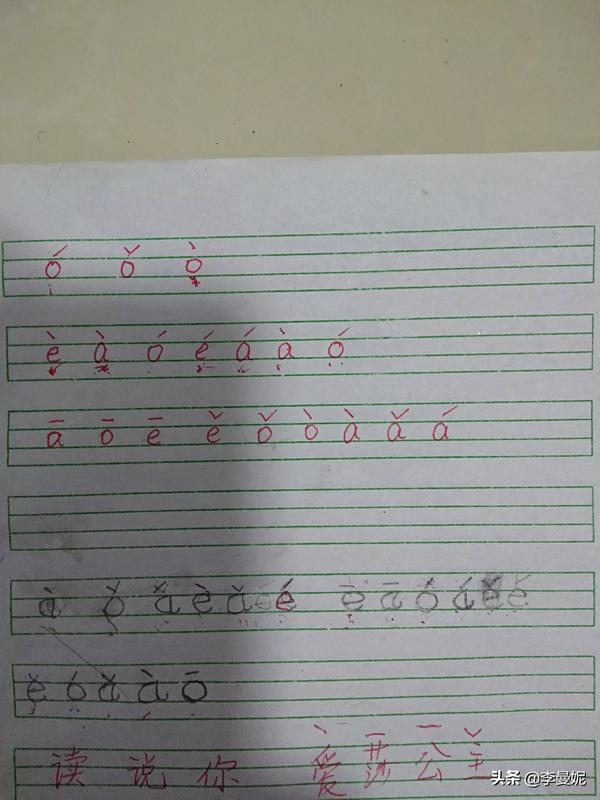 ó ǒ ò
è à ó é á à ó
ā ō ē ě ǒ ò à ǎ á
à ǒ ǎ è ǎ é ē ā ó á
ě ó ǎ à ō
读 说 你 爱 莎 公 主
头条 @李曼妮